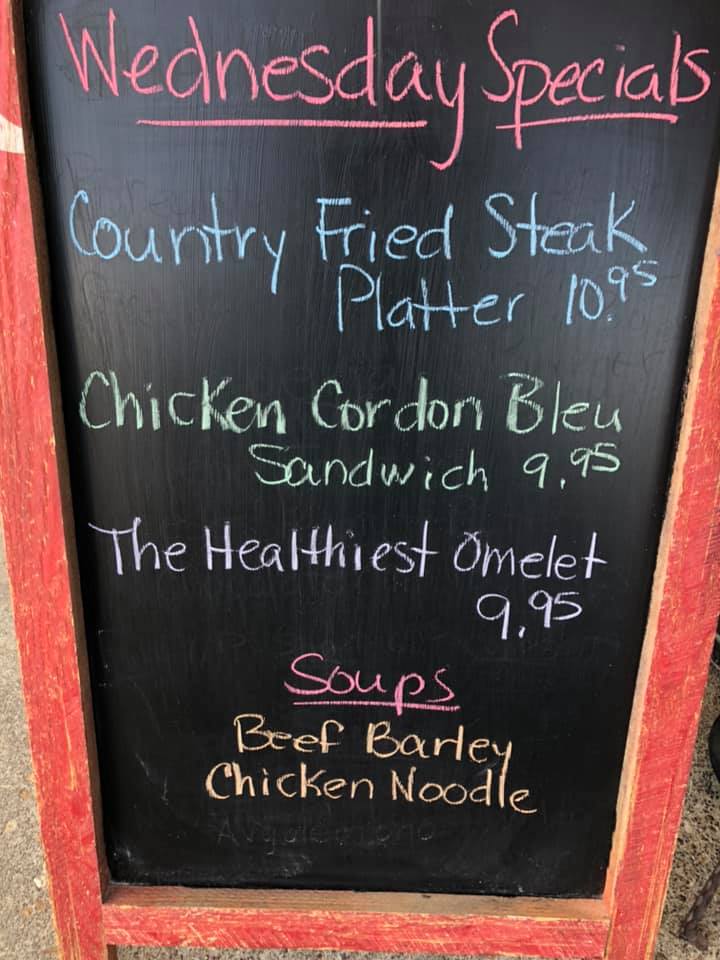 Wednesday Specials
Country Fried Steak
Platter 10.95
Chicken Cordon Bleu
Sandwich 9.95
The Healthiest Omelet
9.95
Soups
Beef Barley
Chicken Noodle